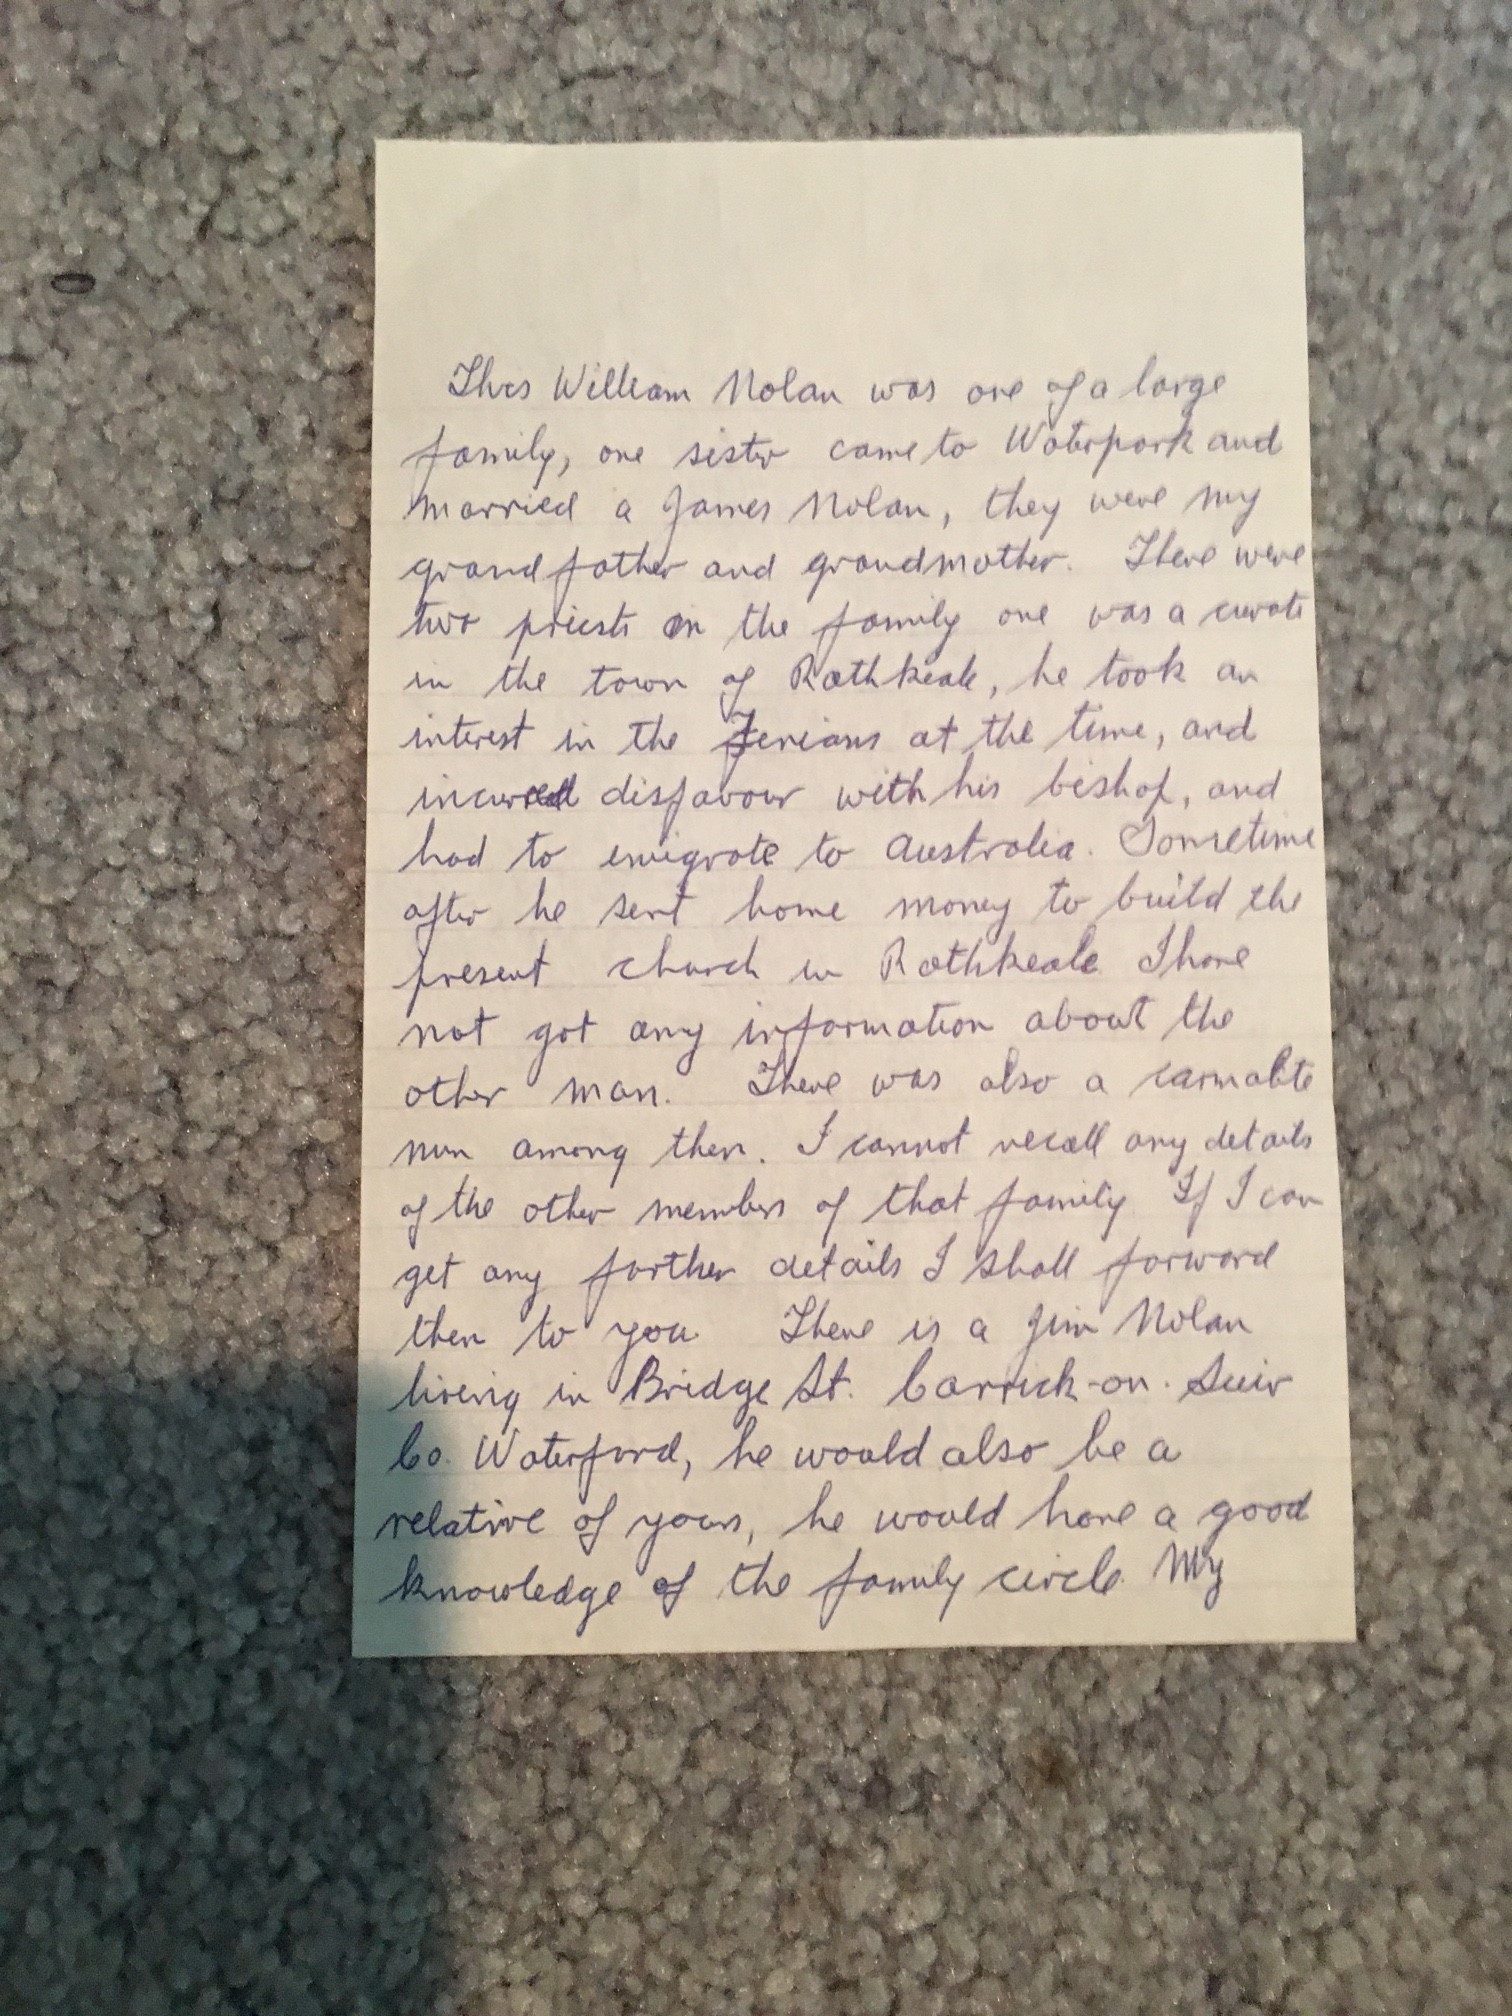 This William Nolan was one of a large
family, one sister came to Waterpark and
married a James Nolan, they were my
grandfather and grandmother. There were
two priests in the family one was a curate
in the town of Rathkeale, he took an
interest in the Fenians at the time, and
incurred disfavour with his bishop, and
had to emigrate to Australia. Sometime
after he sent home money to build the
present church in Rathkeale I have
not got any information about the
other man. There was also a carmalite
nun among them. I cannot recall any details
of the other members of that family If I can
get any further details I shall forward
them to you There is a Jim Nolan
living in Bridge St. Carrick-on-Suir
Co. Waterford, he would also be a
relative of yours, he would have a good
knowledge of the family circle. My